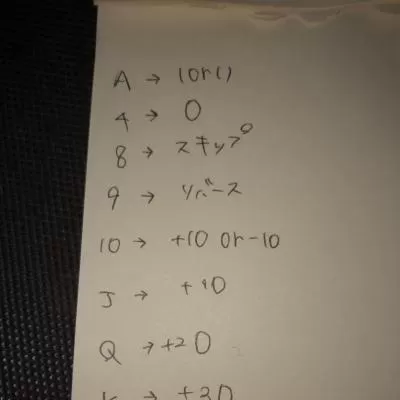 A → 1or11
4 → 0
8 → スキップ
9 → リバース
10 → +10 or -10
J → +10
Q → +20
K → +30